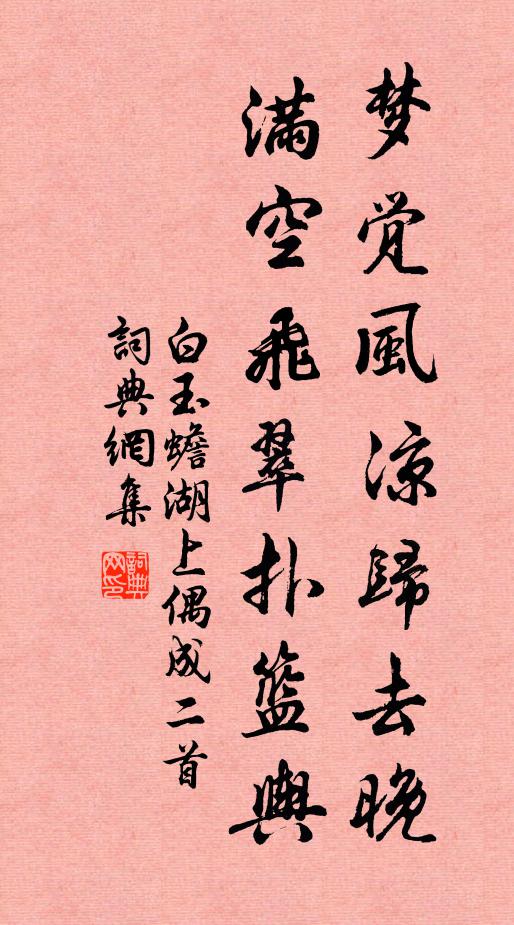 梦觉風凉歸去晚
滿空飛翠扑籃輿
白玉蟾湖上偶成二首
詞典網集
詞典
网印